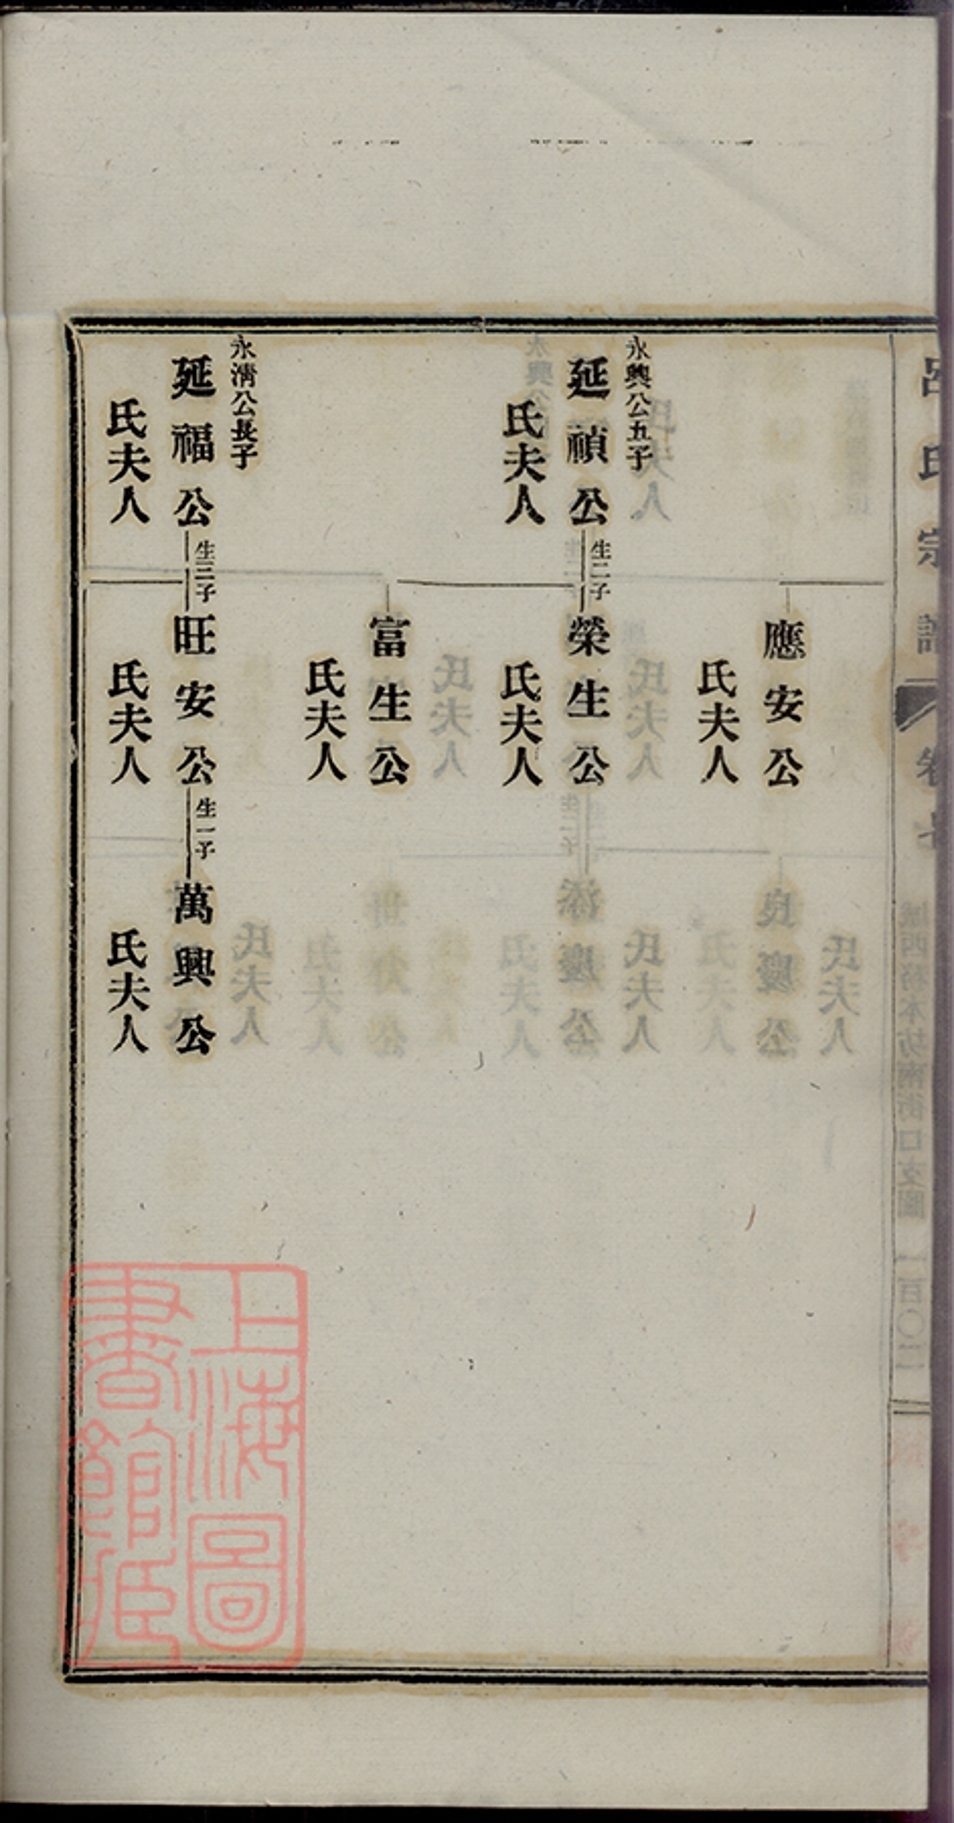 呂氏宗譜
卷七
應安公
氏夫人
永興公五子
延禎公
生二子
氏夫人
榮生公
氏夫人
富生公
氏夫人
永淸公長子
延福公
生三子
氏夫人
旺安公
生一子
氏夫人
萬興公
氏夫人
上海圖
書館藏